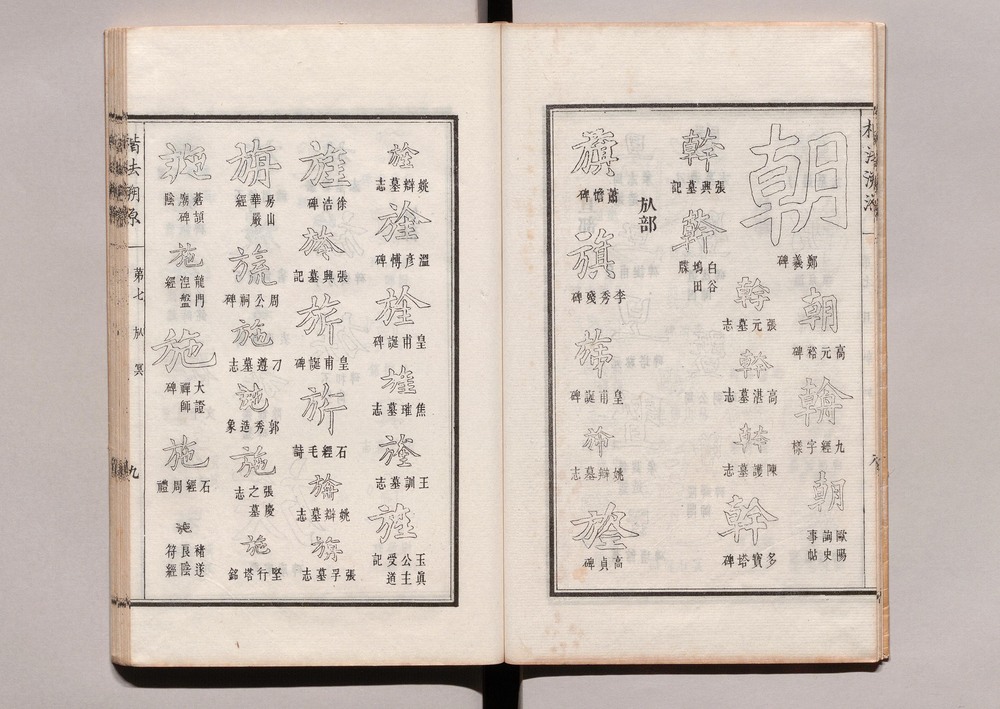 楷法溯源
朝
鄭羲碑
朝
高元裕碑
翰
九經字樣
朝
歐陽詢史事帖
幹
張興墓記
幹
白谷塢田牒
幹
張元墓志
幹
高湛墓志
幹
陳護墓志
幹
多寶塔碑
㫃部
旗
蕭憺碑
旗
李秀殘碑
旆
皇甫誕碑
旆
姚辯墓志
旌
高貞碑
旌
姚辯墓志
旌
溫彥博碑
旌
皇甫誕碑
旌
焦璀墓志
旌
王訓墓志
旌
玉眞公主受道記
旌
徐浩碑
張興墓記
旂
皇甫誕碑
旂
石經毛詩
姚辯墓志
張孚墓志
旃
房山華嚴經
旒
周公祠碑
施
刁遵墓志
施
郭秀造象
施
張之慶墓志
施
堅行塔銘
施
蒼頡廟碑陰
施
龍門涅槃經
施
大證禪師碑
施
石經周禮
施
褚遂良陰符經
楷法溯原
第七 㫃 冥
九